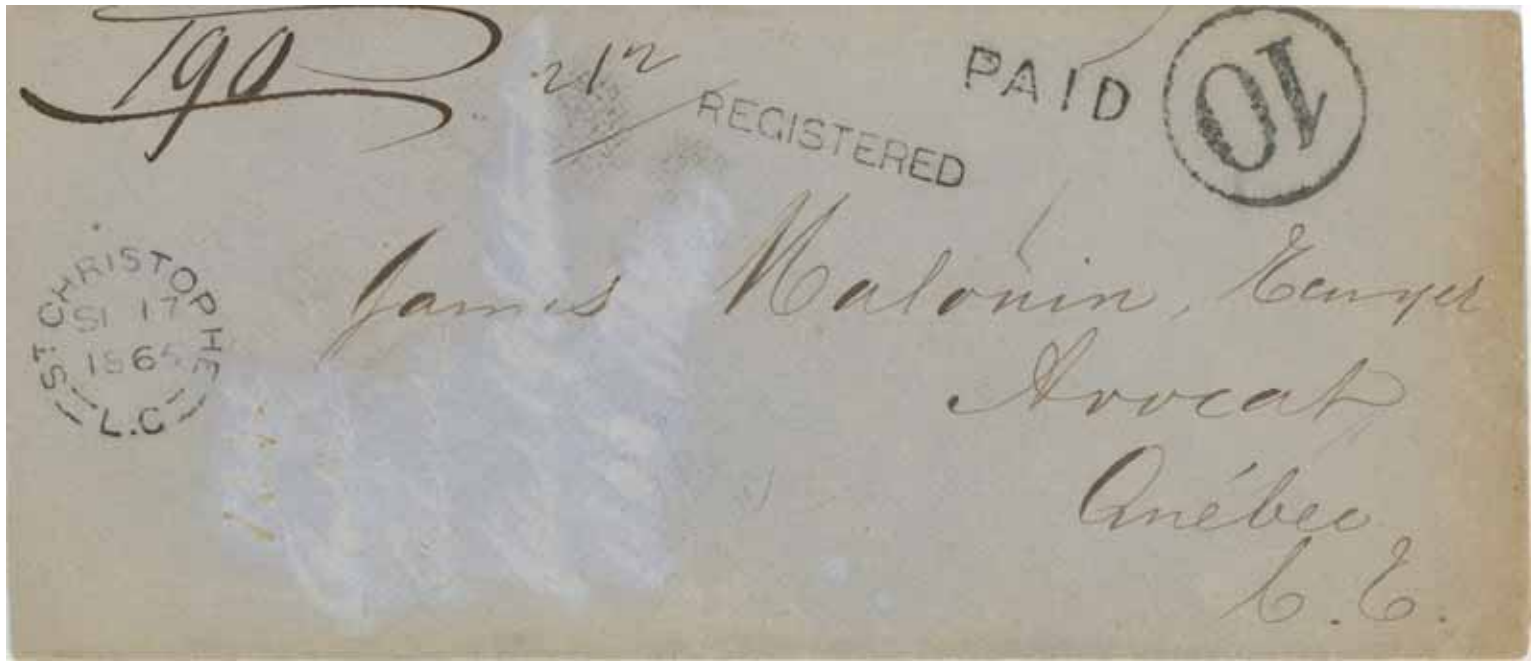 190
212
REGISTERED
PAID 10
ST. CHRISTOPHE
17
L.C
James Malouin, Ecuyer
Avocat
Québec
C. E.